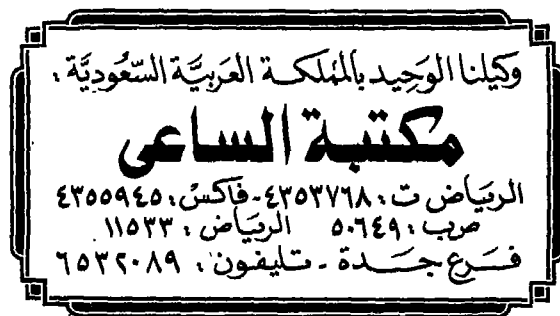 وكيلنا الوَحِيد بالمَملكة العَربيَّة السّعُوديَّة :
مكتبة الساعى
الريَاض ت : ٤٣٥٣٧٦٨ - فاكسْ : ٤٣٥٥٩٤٥
صرب : ٥٠٦٤٩ الريَاض : ١١٥٣٣
فَرع جَدة - تليفون : ٦٥٣٢٠٨٩